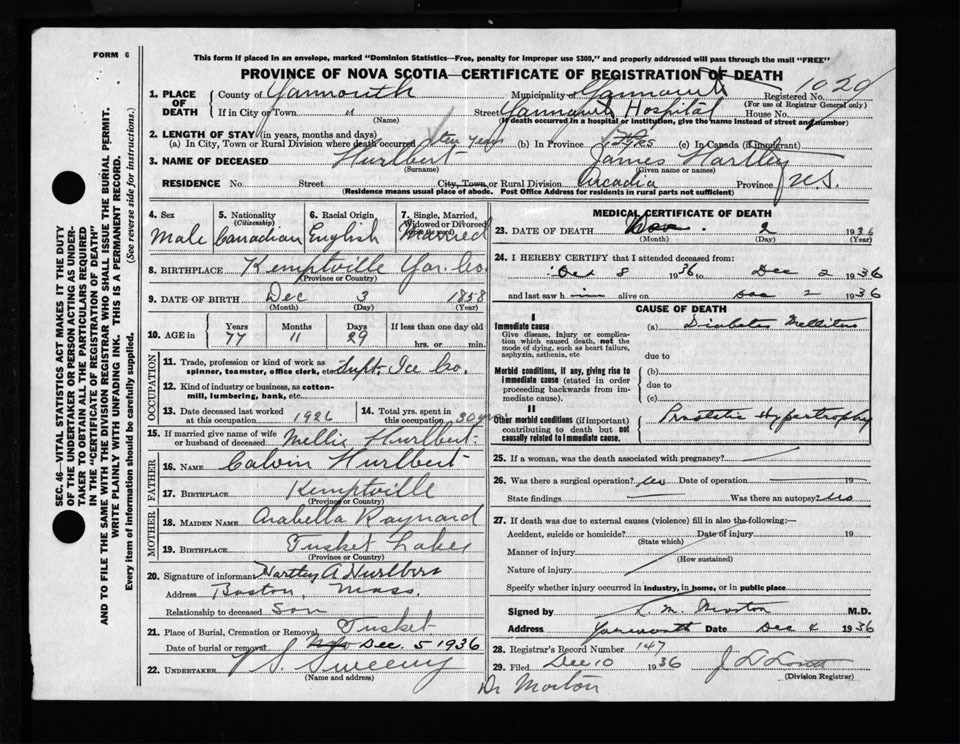 FORM 6
This form if placed in an envelope, marked "Dominion Statistics—Free, penalty for improper use $300," and properly addressed will pass through the mail "FREE"
PROVINCE OF NOVA SCOTIA—CERTIFICATE OF REGISTRATION OF DEATH
SEC. 46—VITAL STATISTICS ACT MAKES IT THE DUTY
OF THE UNDERTAKER OR PERSON ACTING AS UNDER-
TAKER TO OBTAIN ALL THE PARTICULARS REQUIRED
IN THE "CERTIFICATE OF REGISTRATION OF DEATH"
AND TO FILE THE SAME WITH THE DIVISION REGISTRAR WHO SHALL ISSUE THE BURIAL PERMIT.
WRITE PLAINLY WITH UNFADING INK. THIS IS A PERMANENT RECORD.
Every item of information should be carefully supplied. (See reverse side for instructions.)
1. PLACE OF DEATH County of Yarmouth Municipality of Yarmouth Registered No.
(For use of Registrar General only)
If in City or Town " Street Yarmouth Hospital House No.
(Name) (If death occurred in a hospital or institution, give the name instead of street and number)
2. LENGTH OF STAY (in years, months and days)
(a) In City, Town or Rural Division where death occurred ten years (b) In Province (c) In Canada (if immigrant)
3. NAME OF DECEASED Hurlbert James Hartley
(Surname) (Given name or names)
RESIDENCE No. Street City, Town or Rural Division Arcadia Province N.S.
(Residence means usual place of abode. Post Office Address for residents in rural parts not sufficient)
4. Sex Male
5. Nationality (Citizenship) Canadian
6. Racial Origin English
7. Single, Married, Widowed or Divorced Married
8. BIRTHPLACE Kemptville Yar. Co.
(Province or Country)
9. DATE OF BIRTH Dec 3 1858
(Month) (Day) (Year)
10. AGE in Years 77 Months 11 Days 29 If less than one day old hrs. or min.
OCCUPATION
11. Trade, profession or kind of work as spinner, teamster, office clerk, etc. Supt. Ice Co.
12. Kind of industry or business, as cotton-mill, lumbering, bank, etc.
13. Date deceased last worked at this occupation 1926
14. Total yrs. spent in this occupation 30 yrs.
15. If married give name of wife or husband of deceased Nellie Hurlbert
FATHER
16. NAME Calvin Hurlbert
17. BIRTHPLACE Kemptville
(Province or Country)
MOTHER
18. MAIDEN NAME Arabella Raynard
19. BIRTHPLACE Tusket Lakes
(Province or Country)
20. Signature of informant Hartley A Hurlbert
Address Boston, Mass.
Relationship to deceased Son
21. Place of Burial, Cremation or Removal Tusket
Date of burial or removal Dec. 5 1936
22. UNDERTAKER V S. Sweeny
(Name and address)
MEDICAL CERTIFICATE OF DEATH
23. DATE OF DEATH 2 1936
(Month) (Day) (Year)
24. I HEREBY CERTIFY that I attended deceased from:
Oct 8 1936 to Dec 2 1936
and last saw him alive on Dec 2 1936
CAUSE OF DEATH
I
Immediate cause (a) Diabetes Mellitus
Give disease, injury or complication which caused death, not the mode of dying, such as heart failure, asphyxia, asthenia, etc.
due to
Morbid conditions, if any, giving rise to immediate cause (stated in order proceeding backwards from immediate cause).
(b)
due to
(c)
II
Other morbid conditions (if important) contributing to death but not causally related to immediate cause. Prostatic Hypertrophy
25. If a woman, was the death associated with pregnancy?
26. Was there a surgical operation? No Date of operation 19
State findings Was there an autopsy? No
27. If death was due to external causes (violence) fill in also the following:—
Accident, suicide or homicide? Date of injury 19
(State which)
Manner of injury
(How sustained)
Nature of injury
Specify whether injury occurred in industry, in home, or in public place
Signed by Morton M.D.
Address Yarmouth Date Dec 4 1936
28. Registrar's Record Number 147
29. Filed Dec 10 1936
(Division Registrar)
Dr Morton